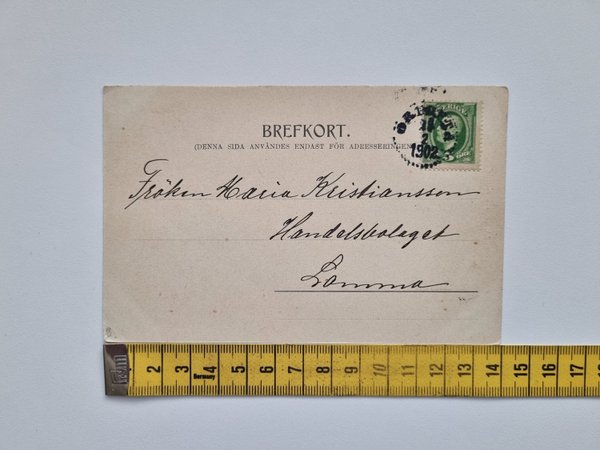 SVERIGE
16
2
1902
BREFKORT.
(DENNA SIDA ANVÄNDES ENDAST FÖR ADRESSERINGEN
Fröken Maria Kristiansson
Handelsbolaget
Lomma
2 3 4 5 6 7 8 9 10 11 12 13 14 15 16 17
Germany